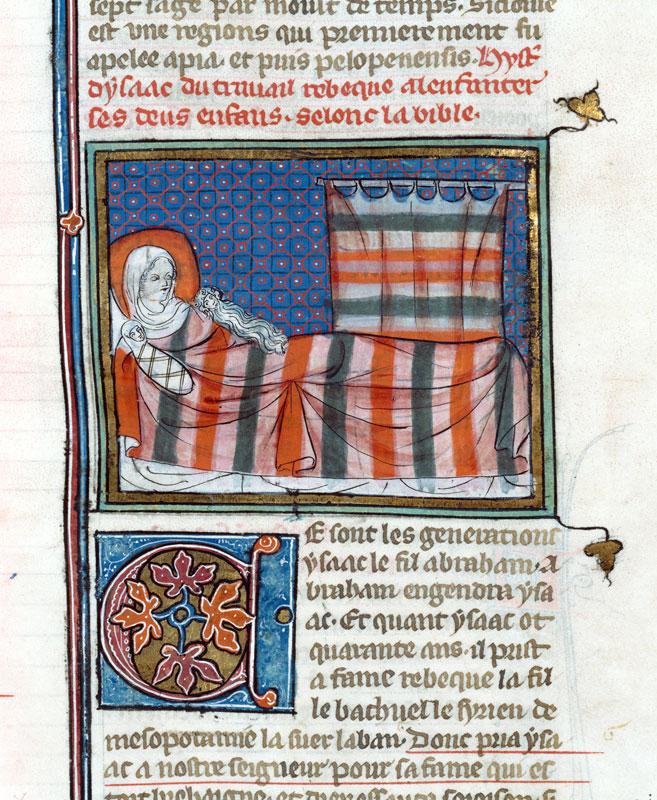 sept sage par moult de temps. Sidoine
est vne regions qui premierement fu
apelee apia. et puis pelopenensis. Hyst
dysaac du trauail rebeque alenfanter
ses deus enfans. selonc la bible.
CE sont les generations
ysaac le fil abraham. A
braham engendra ysa
ac. Et quant ysaac ot
quarante ans. il prist
a fame rebeque la fil
le bachuel le syrien de
mesopotamie la suer laban. Donc pria ysa
ac a nostre seigneur pour sa fame qui es
toit brehaigne. et diex